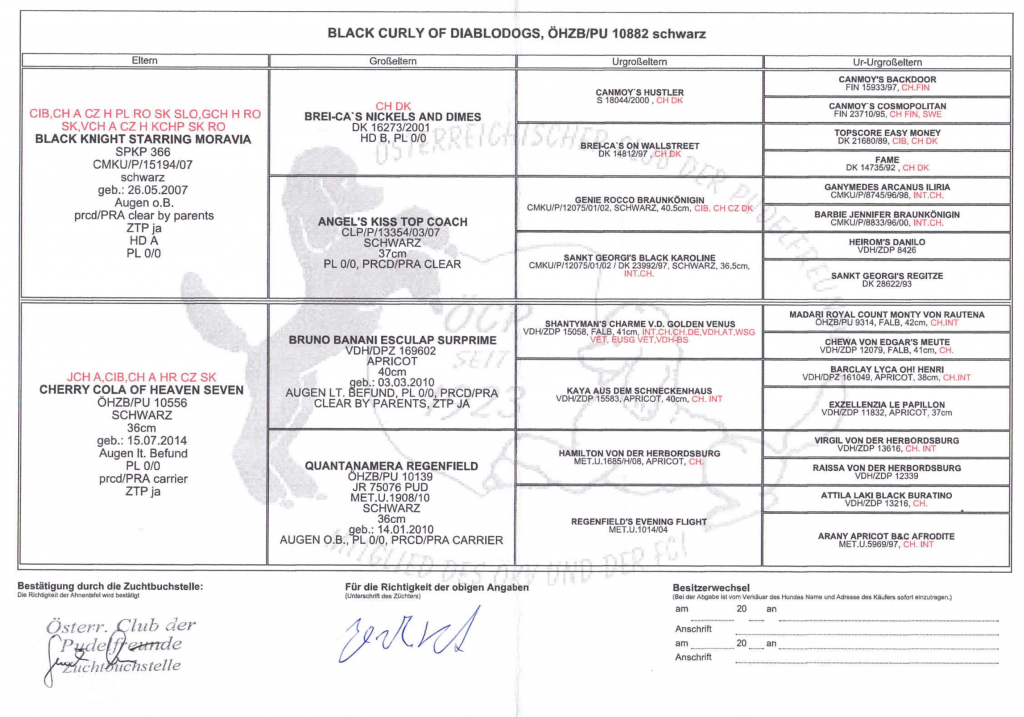 BLACK CURLY OF DIABLODOGS, ÖHZB/PU 10882 schwarz
Eltern
Großeltern
Urgroßeltern
Ur-Urgroßeltern
CIB,CH A CZ H PL RO SK SLO,GCH H RO
SK,VCH A CZ H KCHP SK RO
BLACK KNIGHT STARRING MORAVIA
SPKP 366
CMKU/P/15194/07
schwarz
geb.: 26.05.2007
Augen o.B.
prcd/PRA clear by parents
ZTP ja
HD A
PL 0/0
JCH A,CIB,CH A HR CZ SK
CHERRY COLA OF HEAVEN SEVEN
ÖHZB/PU 10556
SCHWARZ
36cm
geb.: 15.07.2014
Augen lt. Befund
PL 0/0
prcd/PRA carrier
ZTP ja
CH DK
BREI-CA`S NICKELS AND DIMES
DK 16273/2001
HD B, PL 0/0
ANGEL'S KISS TOP COACH
CLP/P/13354/03/07
SCHWARZ
37cm
PL 0/0, PRCD/PRA CLEAR
BRUNO BANANI ESCULAP SURPRIME
VDH/DPZ 169602
APRICOT
40cm
geb.: 03.03.2010
AUGEN LT. BEFUND, PL 0/0, PRCD/PRA
CLEAR BY PARENTS, ZTP JA
QUANTANAMERA REGENFIELD
ÖHZB/PU 10139
JR 75076 PUD
MET.U.1908/10
SCHWARZ
36cm
geb.: 14.01.2010
AUGEN O.B., PL 0/0, PRCD/PRA CARRIER
CANMOY`S HUSTLER
S 18044/2000 , CH DK
BREI-CA`S ON WALLSTREET
DK 14812/97 , CH DK
GENIE ROCCO BRAUNKÖNIGIN
CMKU/P/12075/01/02, SCHWARZ, 40.5cm, CIB, CH CZ DK
SANKT GEORGI'S BLACK KAROLINE
CMKU/P/12075/01/02 / DK 23992/97, SCHWARZ, 36.5cm,
INT.CH.
SHANTYMAN'S CHARME V.D. GOLDEN VENUS
VDH/ZDP 15058, FALB, 41cm, INT.CH,CH.DE,VDH,AT,WSG
VET, EUSG VET,VDH-BS
KAYA AUS DEM SCHNECKENHAUS
VDH/ZDP 15583, APRICOT, 40cm, CH. INT
HAMILTON VON DER HERBORDSBURG
MET.U.1685/H/08, APRICOT, CH.
REGENFIELD'S EVENING FLIGHT
MET.U.1014/04
CANMOY'S BACKDOOR
FIN 15933/97, CH.FIN
CANMOY`S COSMOPOLITAN
FIN 23710/95, CH FIN, SWE
TOPSCORE EASY MONEY
DK 21680/89, CIB, CH DK
FAME
DK 14735/92 , CH DK
GANYMEDES ARCANUS ILIRIA
CMKU/P/8745/96/98, INT.CH.
BARBIE JENNIFER BRAUNKÖNIGIN
CMKU/P/8833/96/00, INT.CH.
HEIROM'S DANILO
VDH/ZDP 8426
SANKT GEORGI'S REGITZE
DK 28622/93
MADARI ROYAL COUNT MONTY VON RAUTENA
ÖHZB/PU 9314, FALB, 42cm, CH.INT
CHEWA VON EDGAR'S MEUTE
VDH/ZDP 12079, FALB, 41cm, CH.
BARCLAY LYCA OH! HENRI
VDH/DPZ 161049, APRICOT, 38cm, CH.INT
EXZELLENZIA LE PAPILLON
VDH/ZDP 11832, APRICOT, 37cm
VIRGIL VON DER HERBORDSBURG
VDH/ZDP 13616, CH. INT
RAISSA VON DER HERBORDSBURG
VDH/ZDP 12339
ATTILA LAKI BLACK BURATINO
VDH/ZDP 13216, CH.
ARANY APRICOT B&C AFRODITE
MET.U.5969/97, CH. INT
ÖSTERREICHISCHER CLUB DER PUDELFREUNDE
ÖCP
SEIT
1923
MITGLIED DES ÖKV UND DER FCI
Bestätigung durch die Zuchtbuchstelle:
Die Richtigkeit der Ahnentafel wird bestätigt
Österr. Club der
Pudelfreunde
Zuchtbuchstelle
Für die Richtigkeit der obigen Angaben
(Unterschrift des Züchters)
Besitzerwechsel
(Bei der Abgabe ist vom Verkäuer des Hundes Name und Adresse des Käufers sofort einzutragen.)
am 20 an
Anschrift
am 20 an
Anschrift